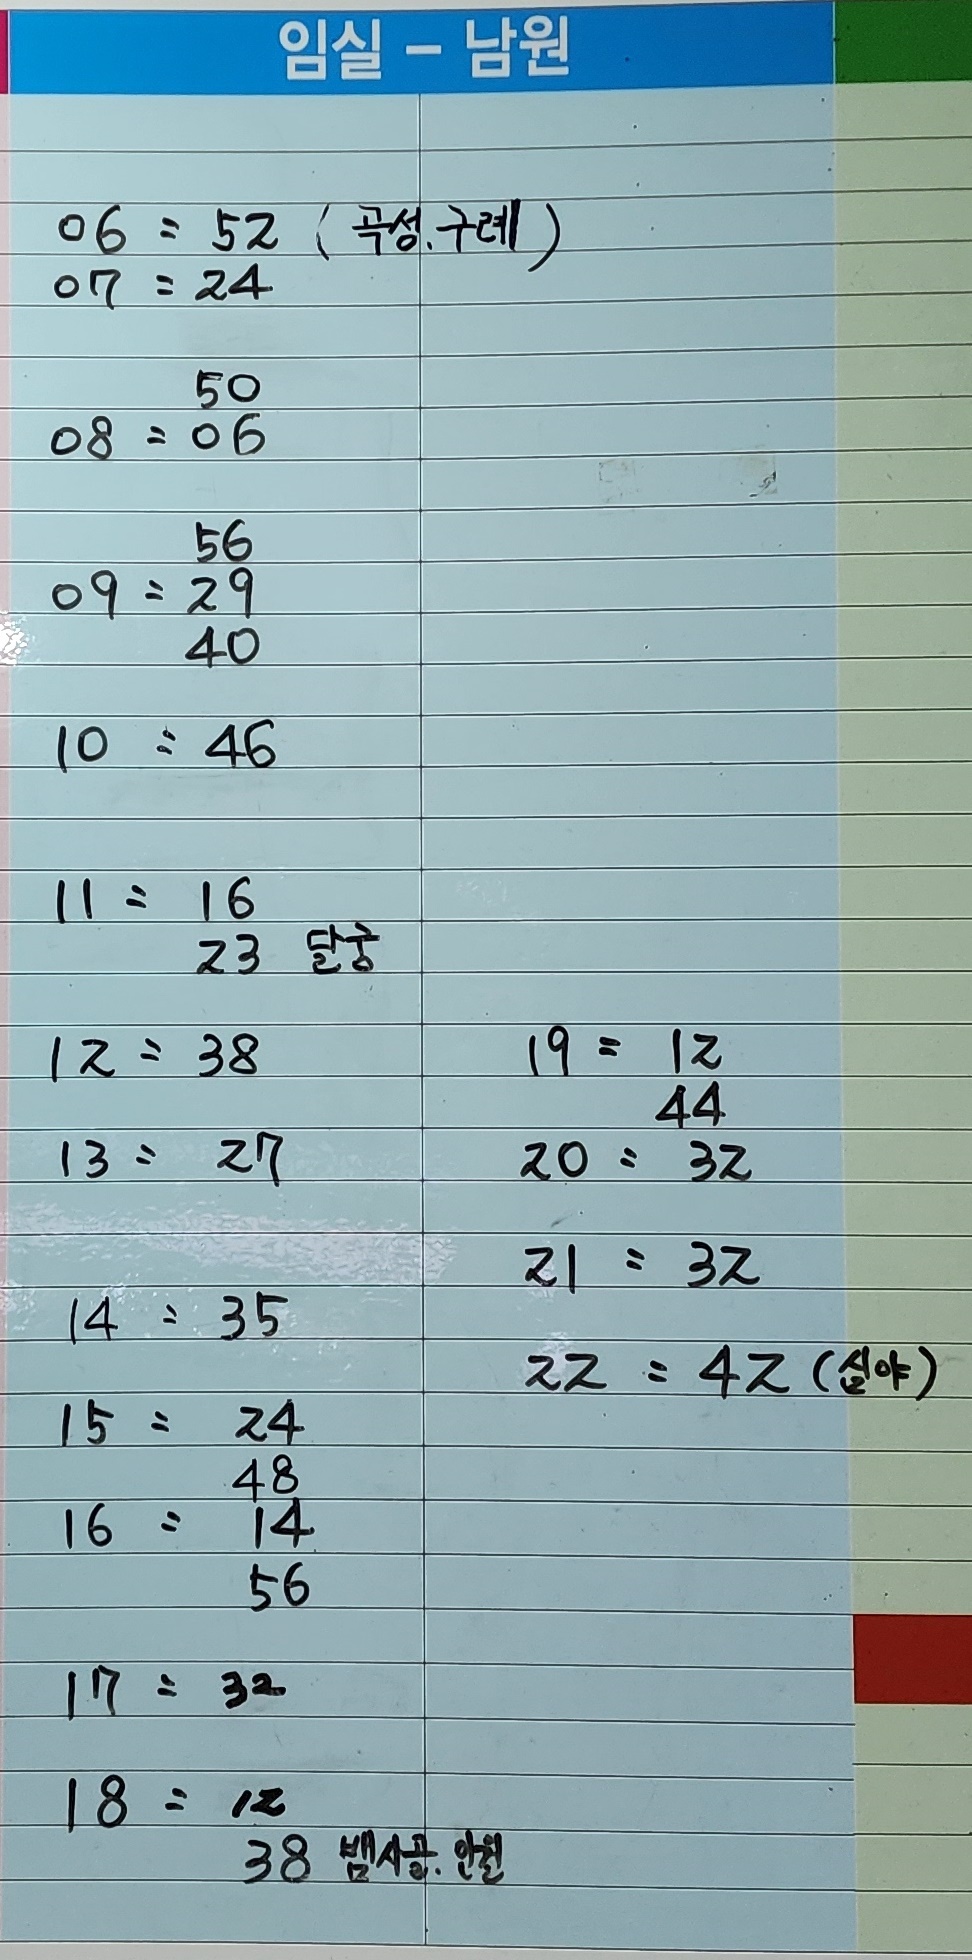 임실 - 남원
06 = 52 (곡성.구례)
07 = 24
50
08 = 06
56
09 = 29
40
10 = 46
11 = 16
23 달궁
12 = 38
13 = 27
14 = 35
15 = 24
48
16 = 14
56
17 = 32
18 = 12
38 뱀사골.인월
19 = 12
44
20 = 32
21 = 32
22 = 42 (심야)